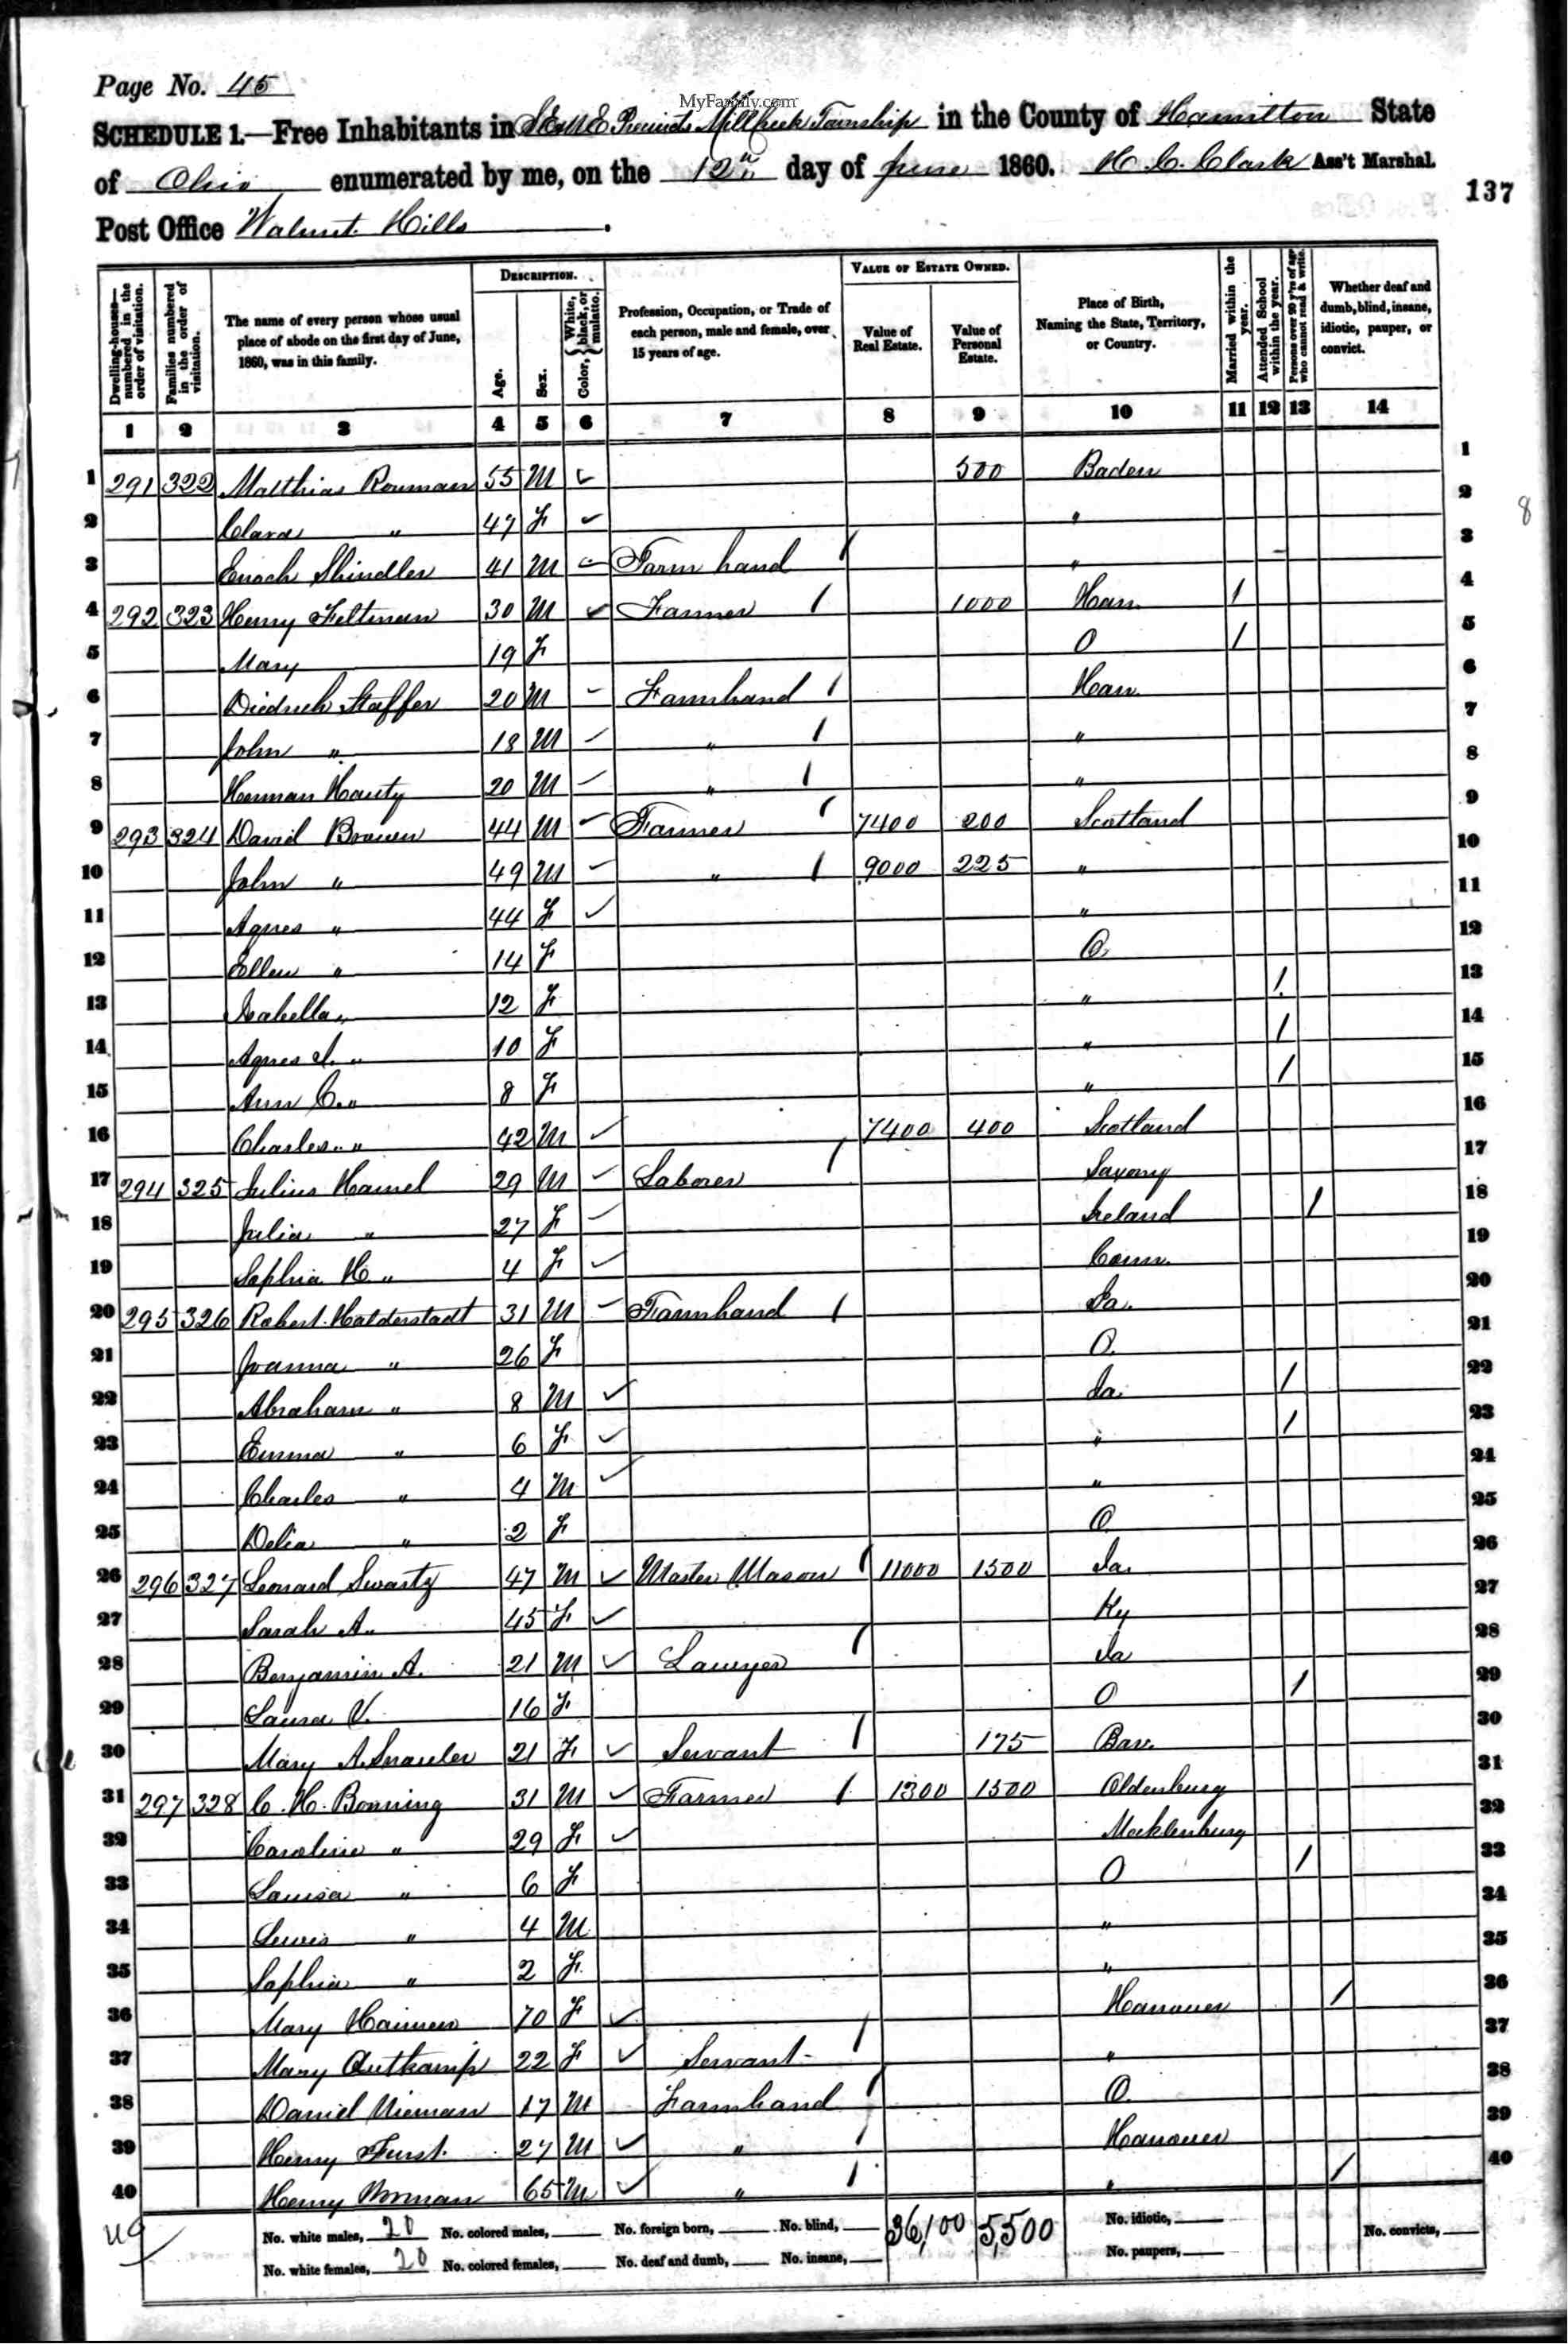 MyFamily.com
Page No. 45
SCHEDULE 1.—Free Inhabitants in S.E & N E Precincts Mill Creek Township in the County of Hamilton State
of Ohio enumerated by me, on the 12" day of June 1860. H. C. Clark Ass't Marshal.
137
Post Office Walnut Hills .
Dwelling-houses—numbered in the order of visitation.
Families numbered in the order of visitation.
The name of every person whose usual place of abode on the first day of June, 1860, was in this family.
DESCRIPTION.
Age.
Sex.
Color, { White, black, or mulatto.
Profession, Occupation, or Trade of each person, male and female, over 15 years of age.
VALUE OF ESTATE OWNED.
Value of Real Estate.
Value of Personal Estate.
Place of Birth, Naming the State, Territory, or Country.
Married within the year.
Attended School within the year.
Persons over 20 y'rs of age who cannot read & write.
Whether deaf and dumb, blind, insane, idiotic, pauper, or convict.
1 2 3 4 5 6 7 8 9 10 11 12 13 14
1 291 322 Matthias Rouman 55 M 500 Baden 1
2 Clara " 47 F " 2
8
3 Enoch Shindler 41 M Farm hand / " 3
4 292 323 Henry Feltman 30 M Farmer / 1000 Han. / 4
5 Mary 19 F O / 5
6 Diedrich Staffer 20 M Farmhand / Han. 6
7 John " 18 M " / " 7
8 Herman Hauty 20 M " / " 8
9 293 324 David Brown 44 M Farmer / 7400 200 Scotland 9
10 John " 49 M " / 9000 225 " 10
11 Agnes " 44 F " 11
12 Ellen " 14 F O. 12
13 Isabella " 12 F " / 13
14 Agnes I. " 10 F " / 14
15 Ann C. " 8 F " / 15
16 Charles " 42 M 7400 400 Scotland 16
17 294 325 Julius Hamel 29 M Laborer / Saxony 17
18 Julia " 27 F Ireland / 18
19 Sophia H " 4 F Conn. 19
20 295 326 Robert Halderstadt 31 M Farmhand / Pa. 20
21 Joanna " 26 F O. 21
22 Abraham " 8 M Ia. / 22
23 Emma " 6 F " / 23
24 Charles " 4 M " 24
25 Delia " 2 F O 25
26 296 327 Leonard Swartz 47 M Master Mason / 11000 1500 26
27 Sarah A. 45 F Ky 27
28 Benjamin A. 21 M Lawyer / 28
29 Laura V. 16 F O / 29
30 Mary A. 21 F Servant / 175 Bav. 30
31 297 328 C. H. Bonning 31 M Farmer / 1300 1500 Oldenburg 31
32 Caroline " 29 F Mecklenburg 32
33 Louisa " 6 F O / 33
34 Lewis " 4 M " 34
35 Sophia " 2 F " 35
36 Mary 70 F Hanover / 36
37 Mary 22 F Servant / " 37
38 Daniel Nieman 17 M Farmhand / O. 38
39 Henry Furst. 27 M " / Hanover 39
40 Henry 65 M " / " / 40
No. white males, 20 No. colored males, No. foreign born, No. blind, 36,100 5,500 No. idiotic, No. convicts,
No. white females, 20 No. colored females, No. deaf and dumb, No. insane, No. paupers,